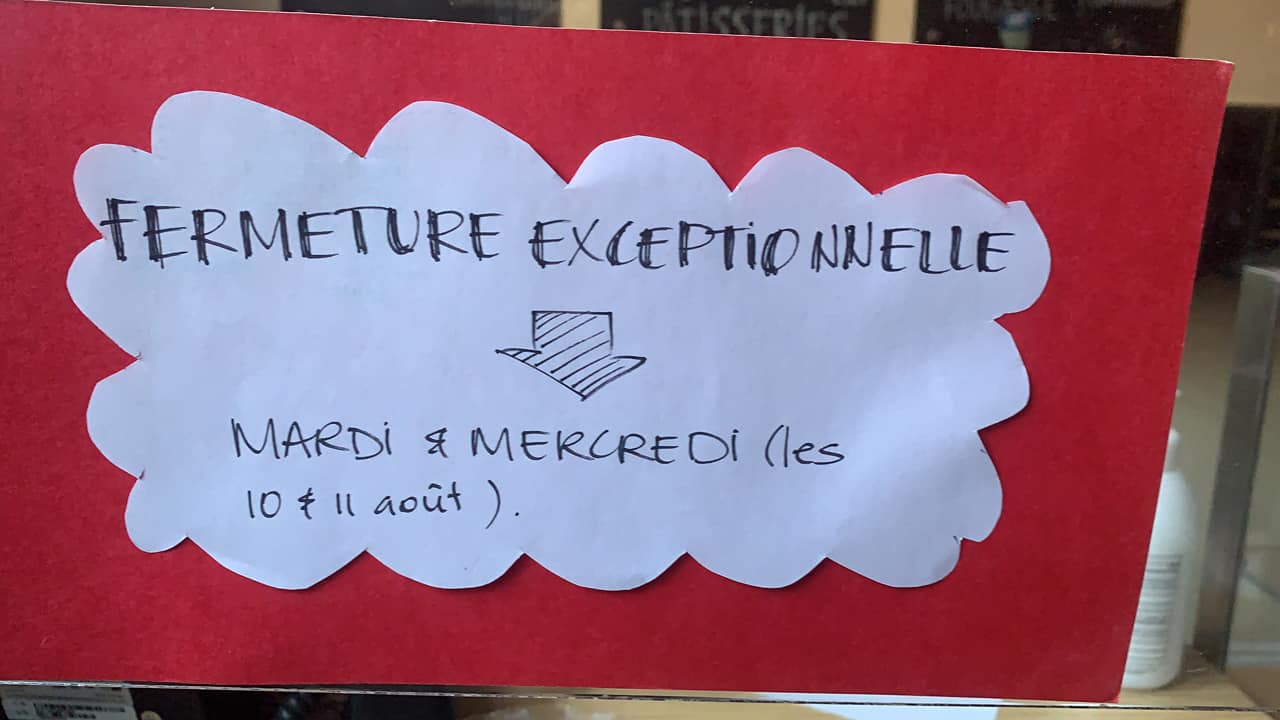 PÂTISSERIES
FERMETURE EXCEPTIONNELLE
MARDI & MERCREDI (les
10 & 11 août).